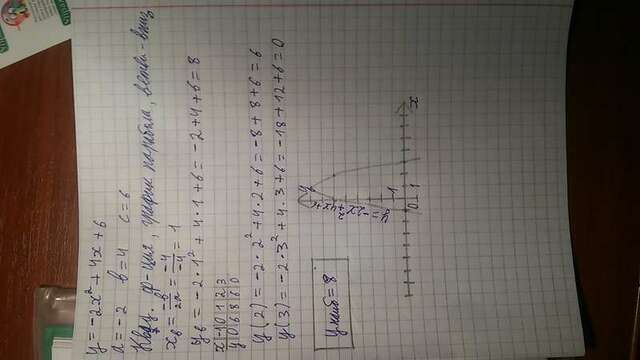 y = -2x² + 4x + 6
a = -2 b = 4 c = 6
Квад. ф-ция, график парабола, ветви - вниз
x_в = -b/2a = -4/-4 = 1
y_в = -2·1² + 4·1 + 6 = -2 + 4 + 6 = 8
x | -1 | 0 | 1 | 2 | 3
y | 0 | 6 | 8 | 6 | 0
y(2) = -2·2² + 4·2 + 6 = -8 + 8 + 6 = 6
y(3) = -2·3² + 4·3 + 6 = -18 + 12 + 6 = 0
y
y = -2x² + 4x + 6
1
0 1
x
y наиб = 8